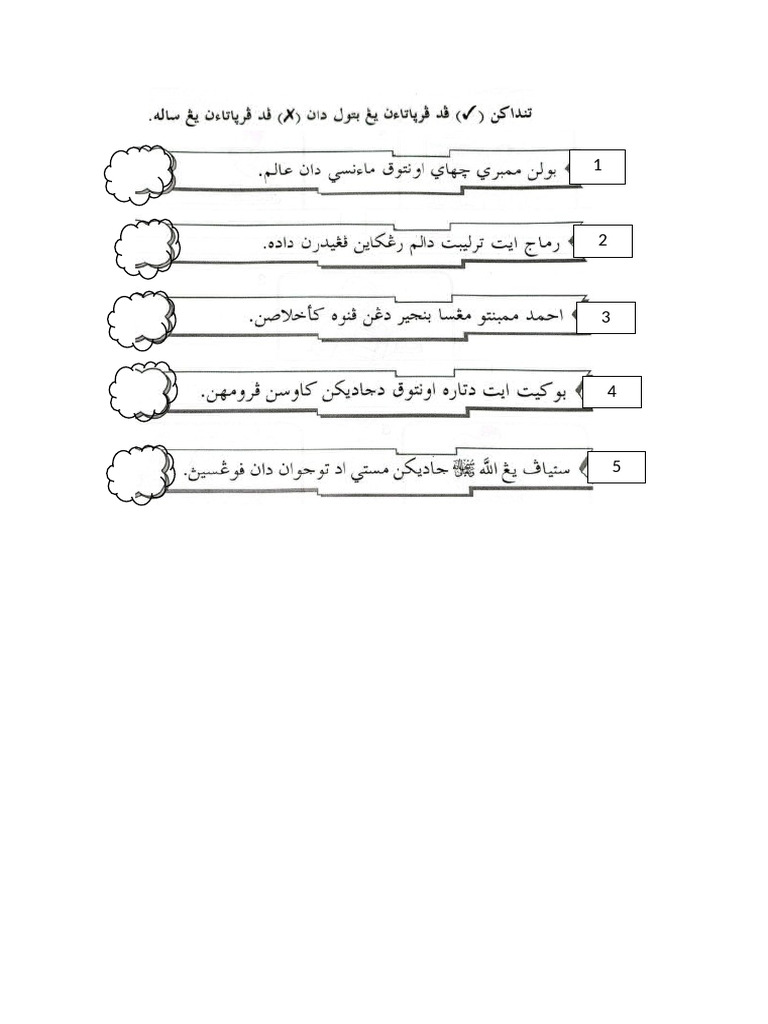 تنداكن (✓) ڤد ڤرڽاتاءن يڠ بتول دان (✗) ڤد ڤرڽاتاءن يڠ ساله.
1 بولن ممبري چهاي اونتوق ماءنسي دان عالم.
2 رماج ايت ترليبت دالم رڠكاين ڤڠيدرن داده.
3 احمد ممبنتو مڠسا بنجير دڠن ڤنوه كأخلاصن.
4 بوكيت ايت دتاره اونتوق دجاديكن كاوسن ڤرومهن.
5 ستياڤ يڠ الله ﷻ جاديكن مستي اد توجوان دان فوڠسيڽ.